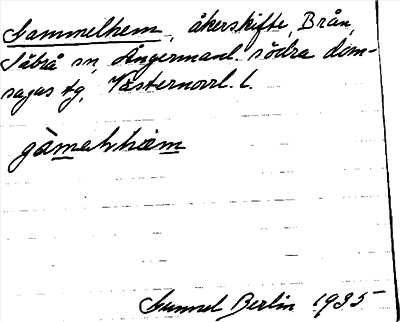 Gammelhem, åkerskifte, Brån,
Säbrå sn, Ångermanl. södra dom-
sagas tg, Västernorrl. l.
Gunnel Berlin 1935